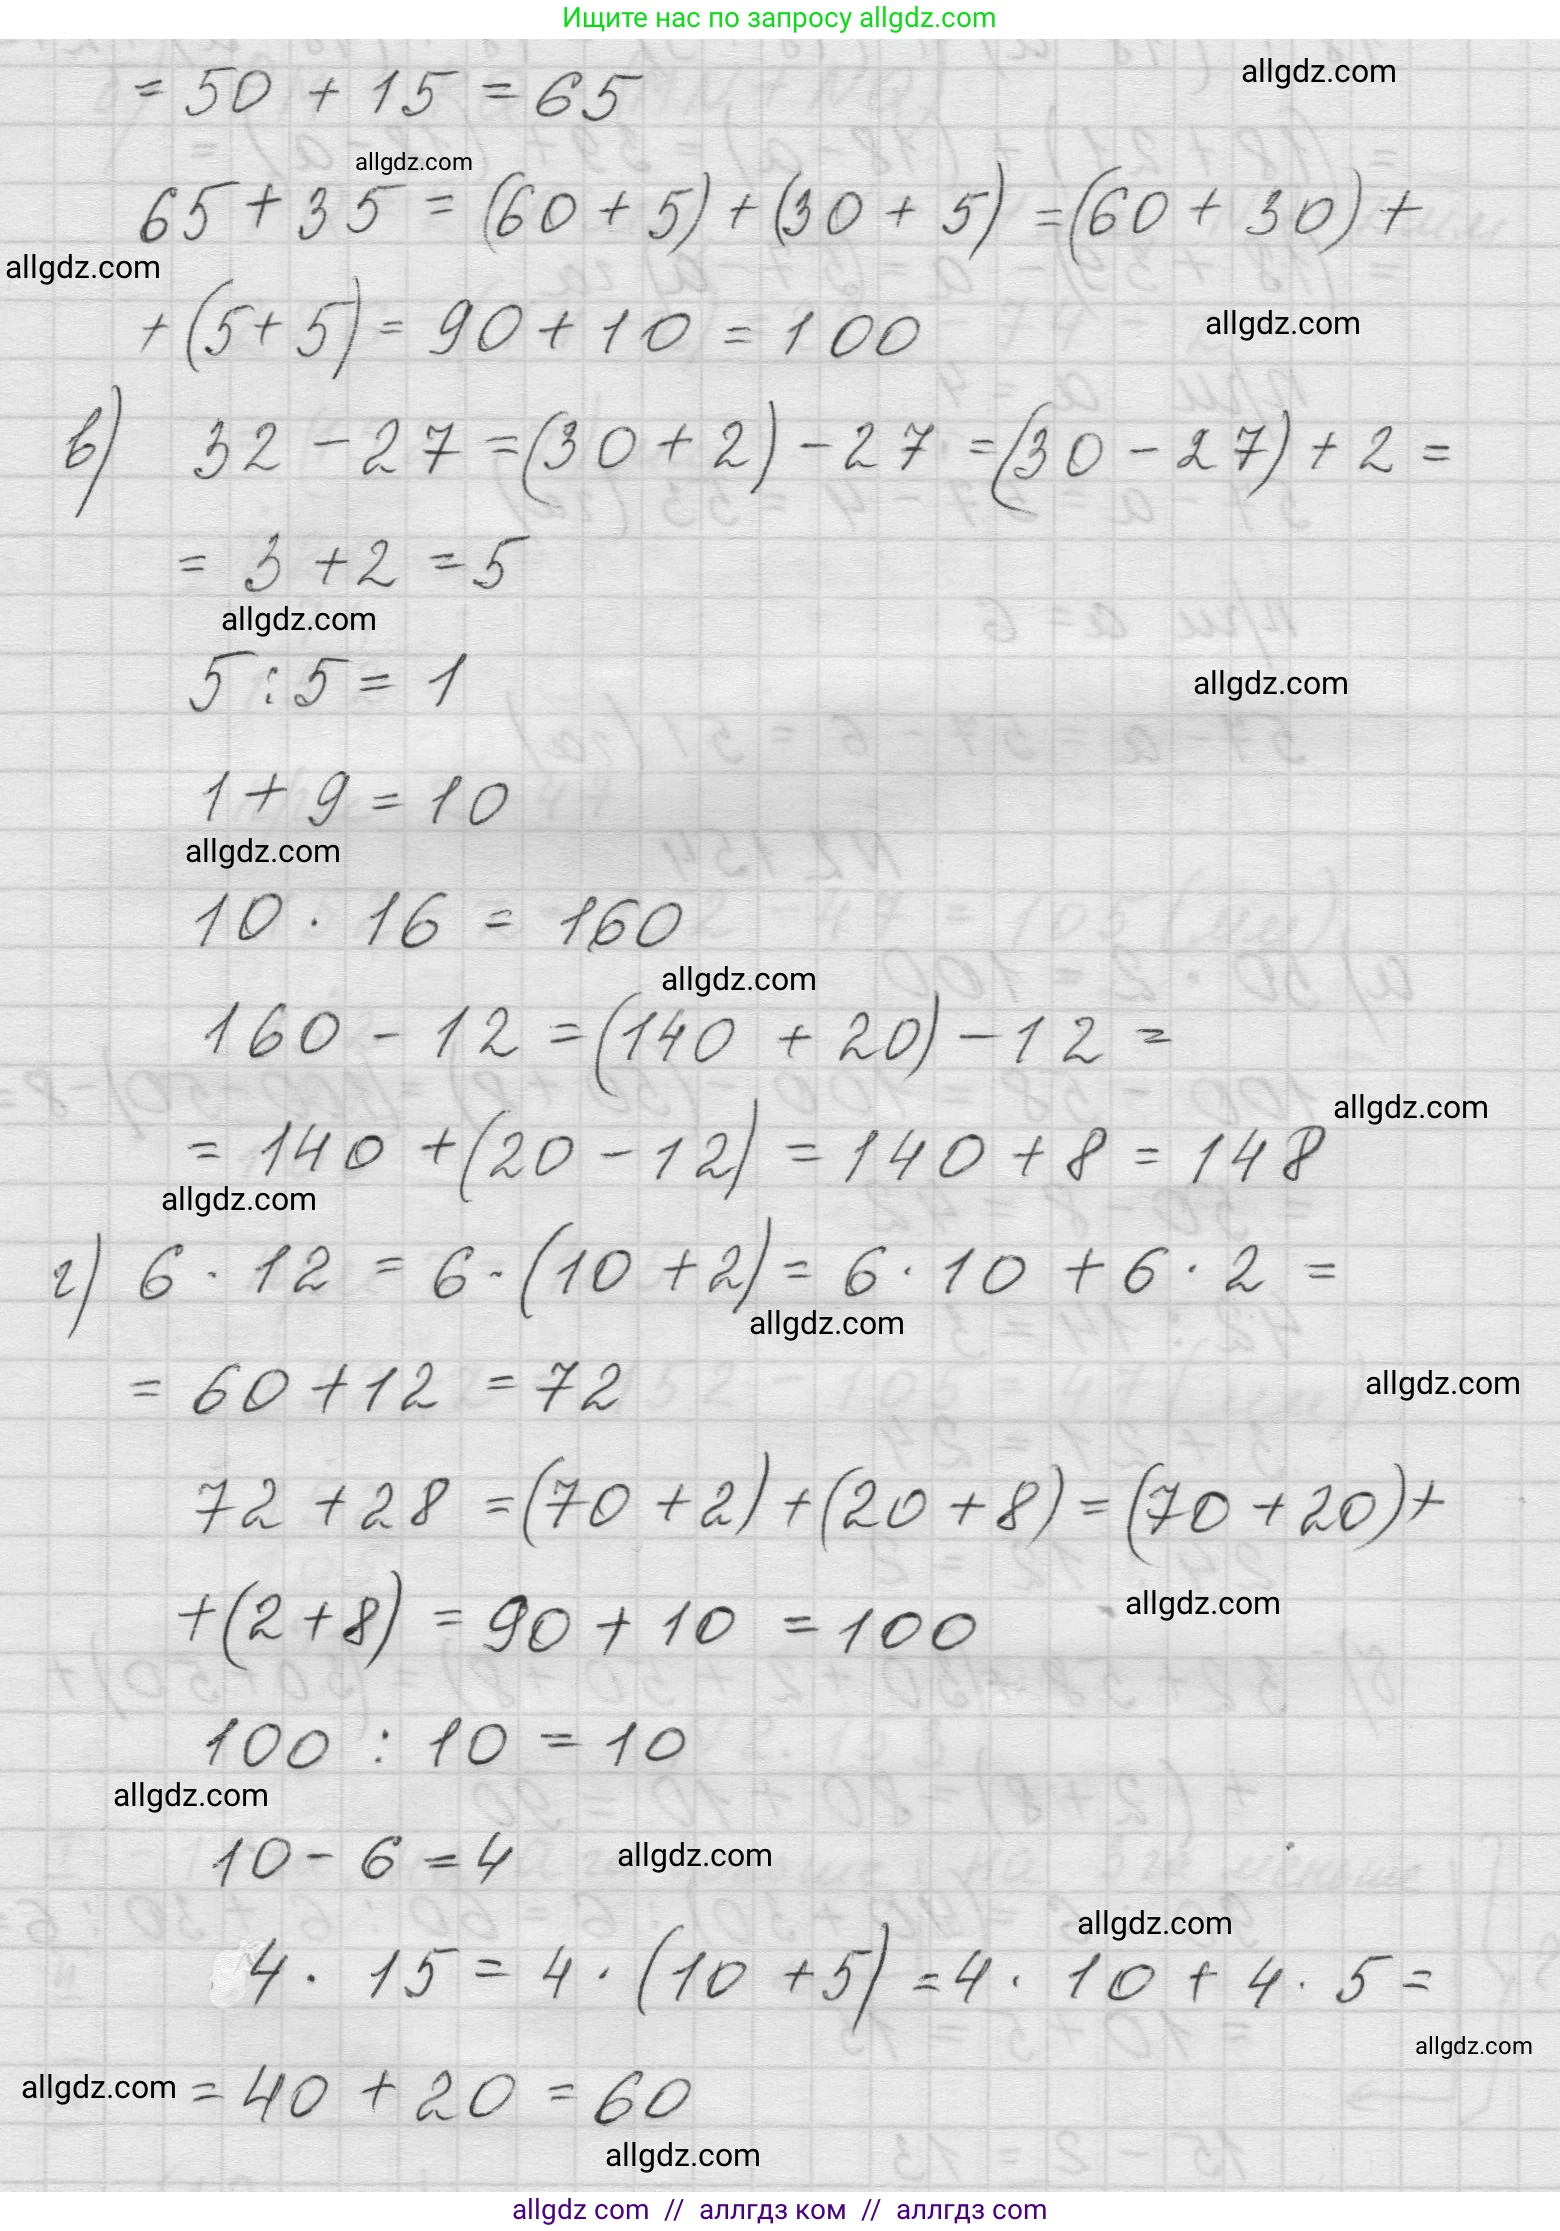 Ищите нас по запросу allgdz.com
= 50 + 15 = 65
allgdz.com
allgdz.com
65 + 35 = (60 + 5) + (30 + 5) = (60 + 30) +
allgdz.com
+ (5 + 5) = 90 + 10 = 100
allgdz.com
в) 32 - 27 = (30 + 2) - 27 = (30 - 27) + 2 =
= 3 + 2 = 5
allgdz.com
5 : 5 = 1
allgdz.com
1 + 9 = 10
allgdz.com
10 · 16 = 160
allgdz.com
160 - 12 = (140 + 20) - 12 =
allgdz.com
= 140 + (20 - 12) = 140 + 8 = 148
allgdz.com
г) 6 · 12 = 6 · (10 + 2) = 6 · 10 + 6 · 2 =
allgdz.com
= 60 + 12 = 72
allgdz.com
72 + 28 = (70 + 2) + (20 + 8) = (70 + 20) +
+ (2 + 8) = 90 + 10 = 100
allgdz.com
100 : 10 = 10
allgdz.com
10 - 6 = 4
allgdz.com
allgdz.com
4 · 15 = 4 · (10 + 5) = 4 · 10 + 4 · 5 =
allgdz.com
allgdz.com
= 40 + 20 = 60
allgdz.com
allgdz com // аллгдз ком // аллгдз com